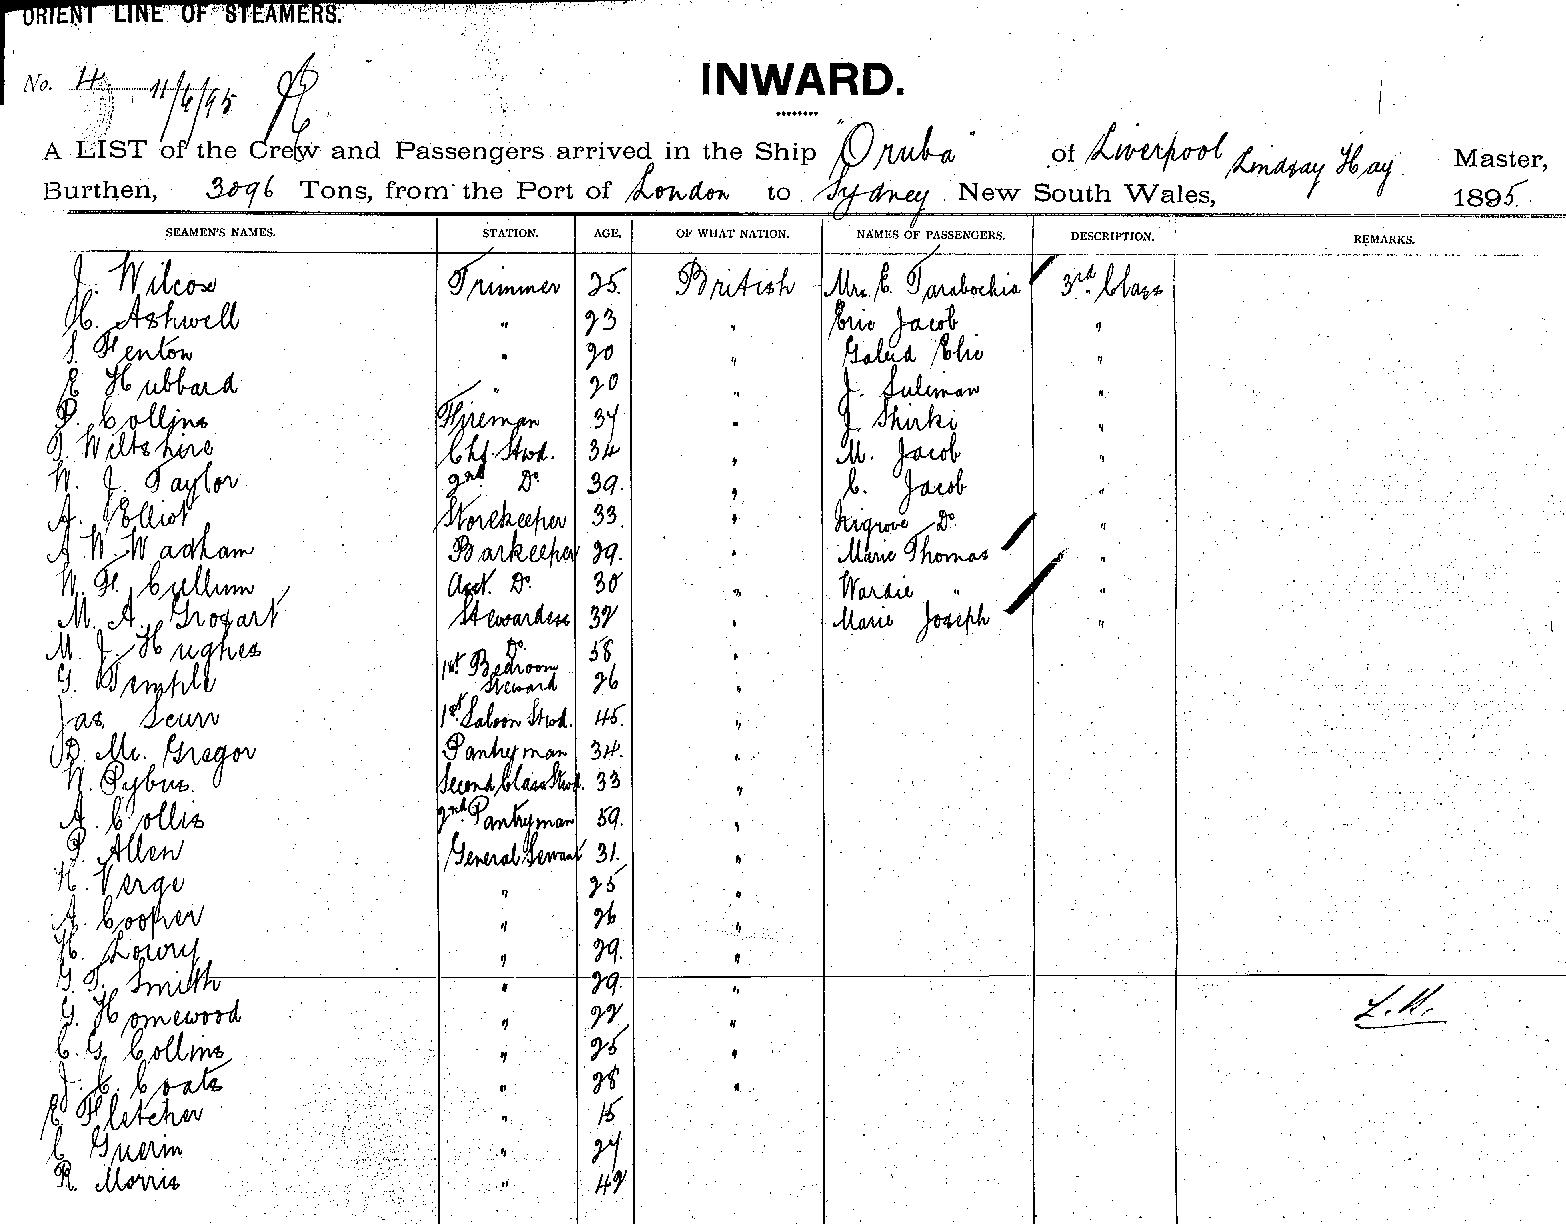 ORIENT LINE OF STEAMERS.
No. 4 11/6/95
INWARD.
A LIST of the Crew and Passengers arrived in the Ship "Oruba" of Liverpool Lindsay Hay Master,
Burthen, 3096 Tons, from the Port of London to Sydney New South Wales, 1895.
SEAMEN'S NAMES. STATION. AGE. OF WHAT NATION. NAMES OF PASSENGERS. DESCRIPTION. REMARKS.
J. Wilcox Trimmer 25. British Mrs. E. Tarabochia 3rd. Class
H. Ashwell " 23 " Eric Jacob "
S. Fenton " 20 " Elio "
E Hubbard " 20 " J. Suliman "
P. Collins Fireman 37 " J. Shirki "
T. Wiltshire Chf. Stwd. 34 " M. Jacob "
W. J. Taylor 2nd Do 39. " C. Jacob "
A. Elliot Storekeeper 33. " Do "
A W Wadham Barkeeper 29. " Marie Thomas "
W. F. Cullum Asst. Do. 30 " Wardie " "
M. A. Grozart Stewardess 32 " Marie Joseph "
M. J. Hughes Do. 58 "
G. Temple 1st. Bedroom Steward 26 "
Jas Scurr 1st. Saloon Stwd. 45. "
D. Mc. Gregor Pantryman 34. "
W. Pybus. Second Class Stwd. 33 "
A. Collis 2nd Pantryman 59. "
P. Allen General Servant 31. "
H. Verge " 25 "
A. Cooper " 26 "
H. Lowry " 29. "
G. T. Smith " 29. "
G. Homewood " 22 " L.H.
C. G. Collins " 25 "
J. C. Coats " 28 "
E Fletcher " 15
C Guerin " 27
R. Morris " 42